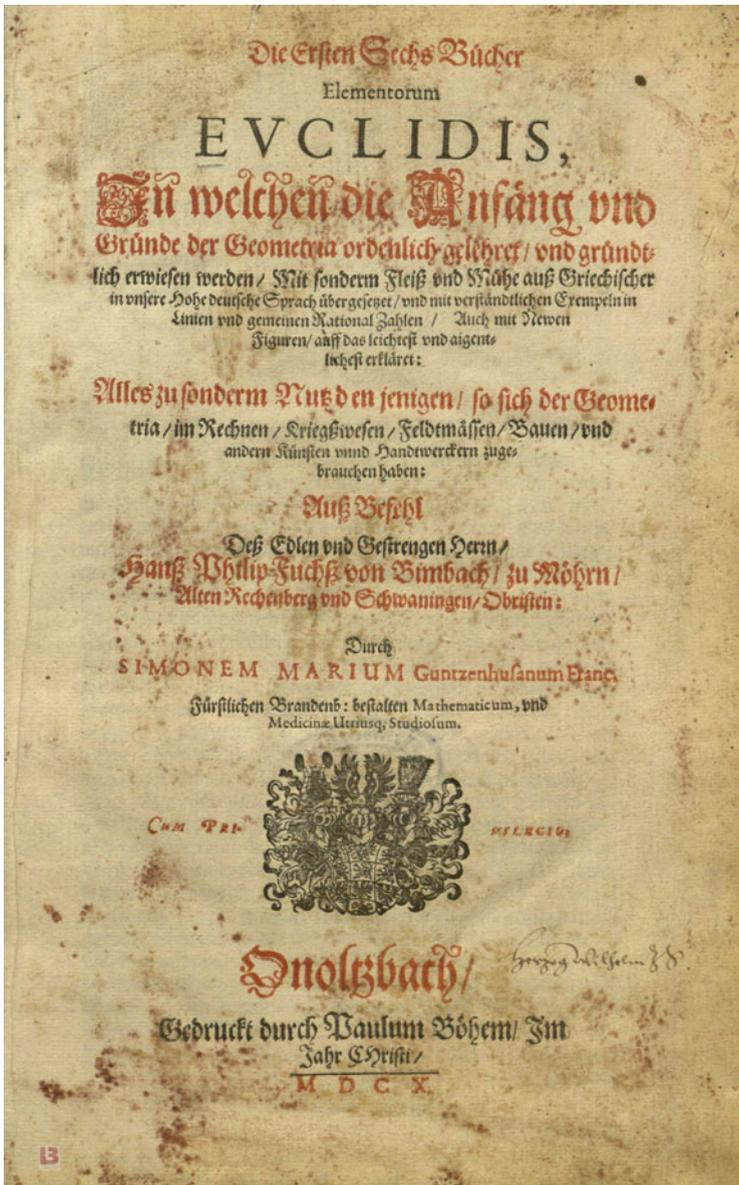 Die Ersten Sechs Bücher
Elementorum
EVCLIDIS,
In welchen die Anfäng vnd
Gründe der Geometria ordenlich gelehret/ vnd gründt-
lich erwiesen werden/ Mit sonderm Fleiß vnd Mühe auß Griechischer
in vnsere Hohe deutsche Sprach übergesetzet/ vnd mit verständtlichen Exempeln in
Linien vnd gemeinen Rational Zahlen / Auch mit Newen
Figuren/ auff das leichtest vnd aigent-
lichest erkläret:
Alles zu sonderm Nutz den jenigen/ so sich der Geome-
tria/ im Rechnen/ Kriegßwesen/ Feldtmässen/ Bauen/ vnd
andern Künsten vnnd Handtwerckern zuge-
brauchen haben:
Auß Befehl
Deß Edlen vnd Gestrengen Herrn/
Hanß Philip Fuchß von Bimbach/ zu Möhrn/
Alten Rechenberg vnd Schwaningen/ Obristen:
Durch
SIMONEM MARIUM Guntzenhusanum Franc.
Fürstlichen Brandenb: bestalten Mathematicum, vnd
Medicinæ Utriusq; Studiosum.
CUM PRI-
VILEGIO;
Onoltzbach/
Herzog Wilhelm
Gedruckt durch Paulum Böhem/ Im
Jahr CHristi/
M D C X.